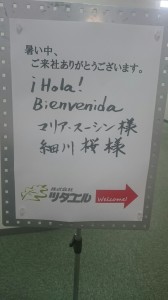 暑い中、
ご来社ありがとうございます。
¡Hola!
Bienvenida
マリア・スーシン 様
細川 桜 様
株式会社
ツタエル
Welcome!